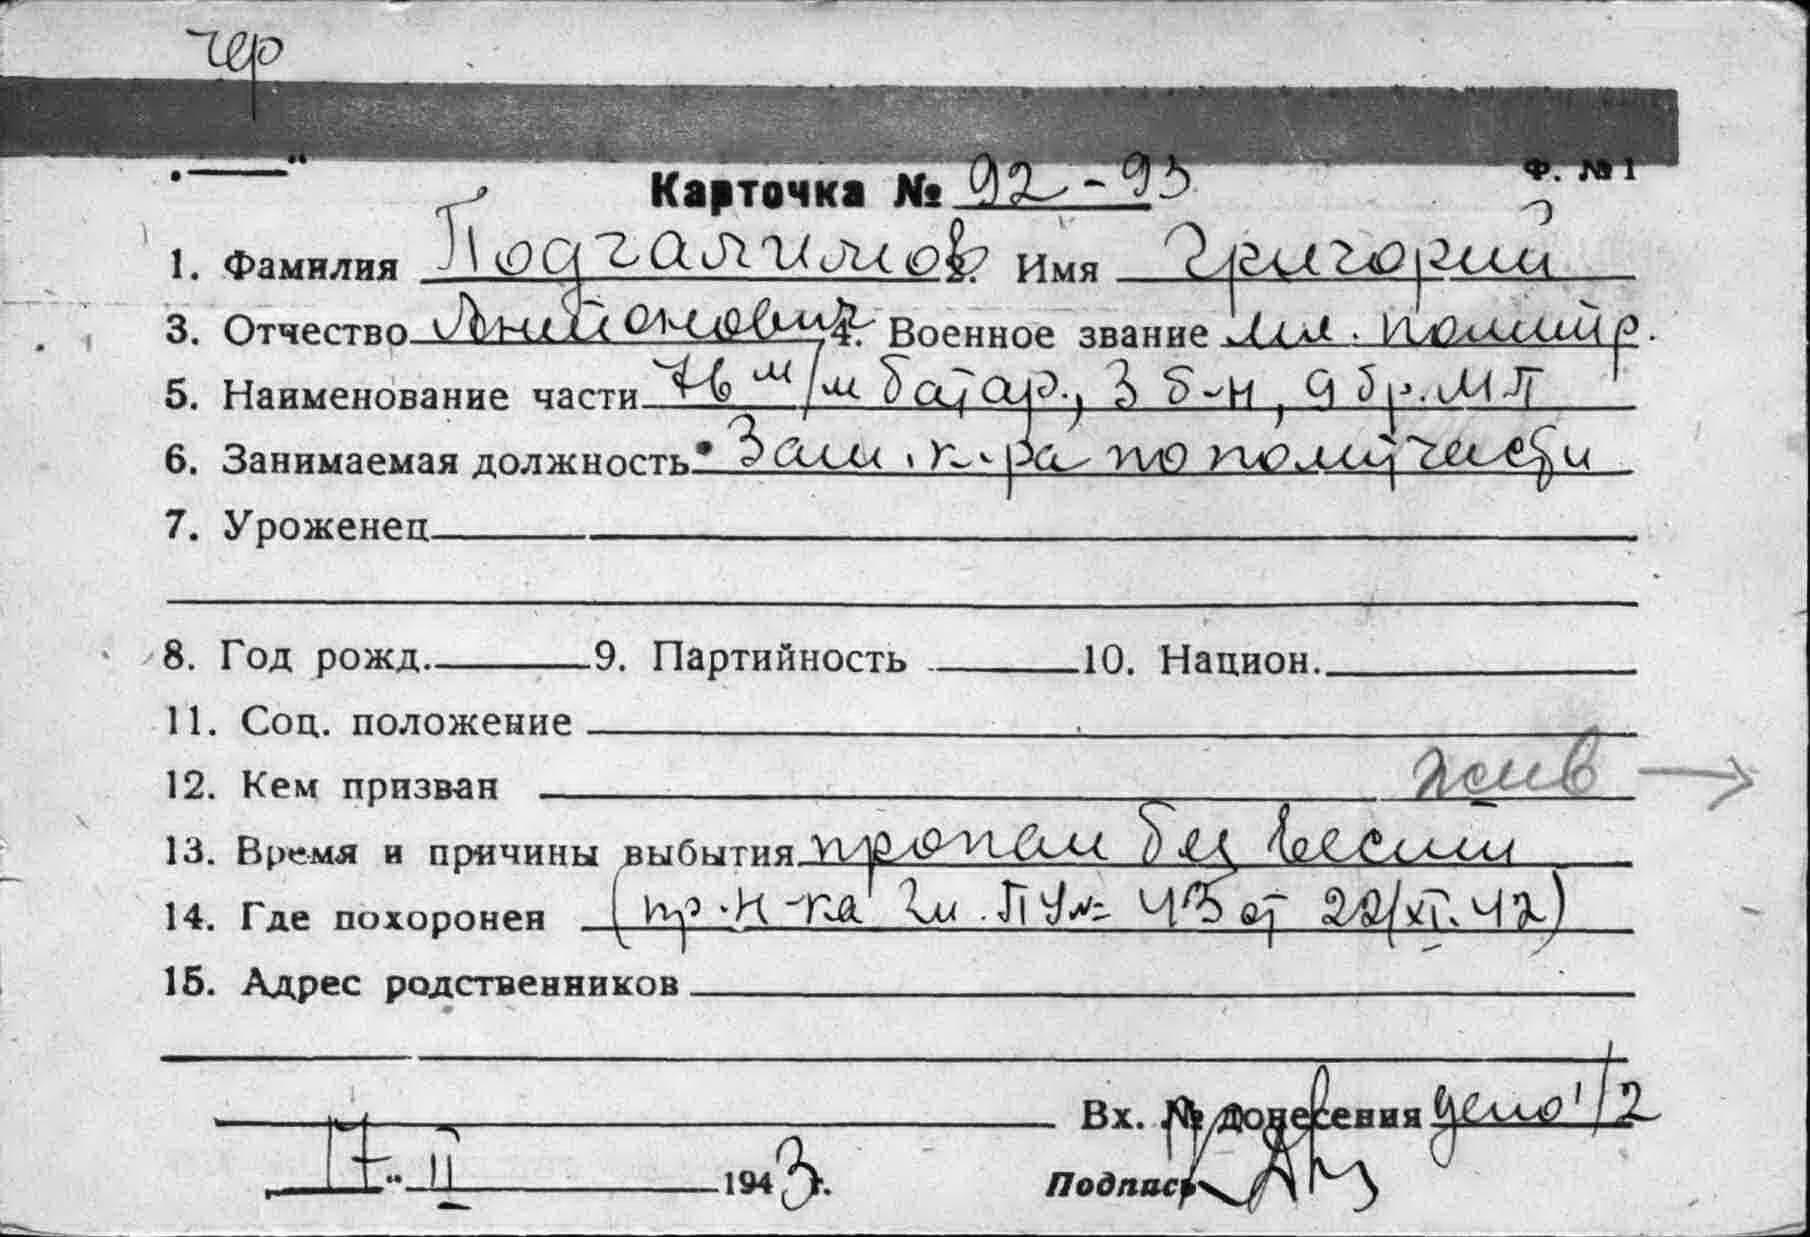 чер
„——“
Ф. № 1
Карточка № 92-93
1. Фамилия Подгалимов. Имя Григорий
3. Отчество Антонович 4. Военное звание мл. политр.
5. Наименование части 76 м/м батар., 3 б-н, 9 бр. МП
6. Занимаемая должность Зам. к-ра по политчасти
7. Уроженец
8. Год рожд. 9. Партийность 10. Национ.
11. Соц. положение
12. Кем призван жив →
13. Время и причины выбытия пропал без вести
14. Где похоронен (пр. н-ка Гл. ПУ № 43 от 22/XI.42)
15. Адрес родственников
Вх. № донесения дело 1/2
17 " II 1943 г. Подпись